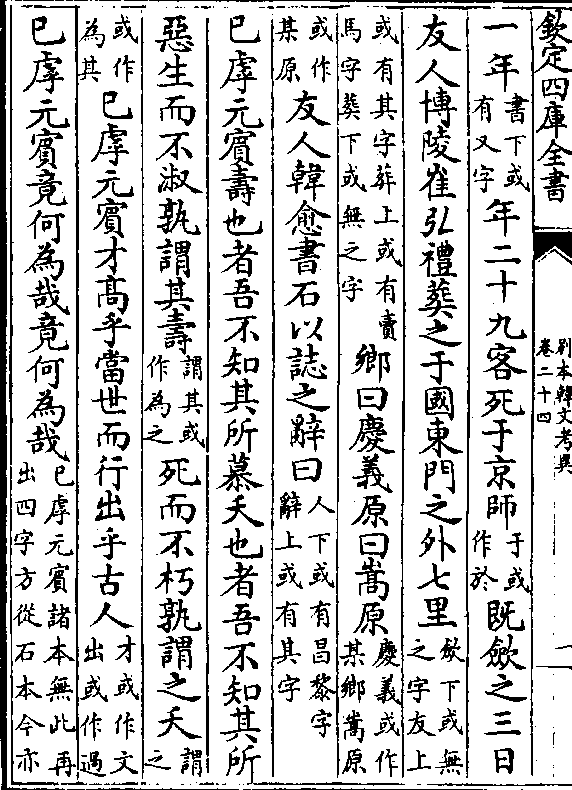 欽定四庫全書
別本韓文考異
卷二十四
一
一年書下或有又字年二十九客死于京師于或作於既斂之三日
友人博陵崔弘禮葬之于國東門之外七里斂下或無之字友上
或有其字葬上或有賣馬字葬下或無之字鄉曰慶義原曰嵩原慶義或作某鄉嵩原
或作某原友人韓愈書石以誌之辭曰人下或有昌黎字辭上或有其字
已虖元賓壽也者吾不知其所慕夭也者吾不知其所
惡生而不淑孰謂其壽謂其或作為之死而不朽孰謂之夭謂之
或作為其已虖元賓才高乎當世而行出乎古人才或作文出或作過
已虖元賓竟何為哉竟何為哉已虖元賓諸本無此再出四字方從石本今亦